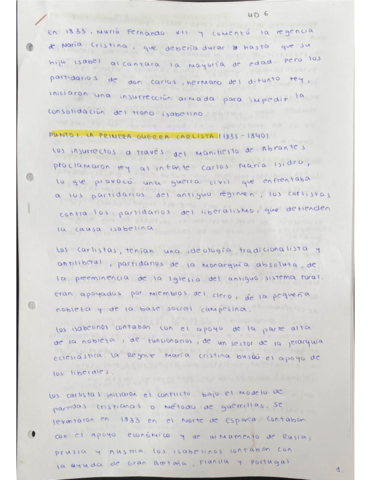 UD 6
En 1833, murió Fernando VII y comenzó la regencia
de María Cristina, que debería durar hasta que su
hija Isabel alcanzara la mayoría de edad. Pero los
partidarios de don Carlos, hermano del difunto rey,
iniciaron una insurrección armada para impedir la
consolidación del trono isabelino.
PUNTO 1 LA PRIMERA GUERRA CARLISTA (1833-1840)
Los insurrectos a través del Manifiesto de Abrantes
proclamaron rey al infante Carlos María Isidro,
lo que provocó una guerra civil que enfrentaba
a los partidarios del antiguo régimen, los carlistas
contra los partidarios del liberalismo, que defienden
la causa isabelina
Los carlistas, tenían una ideología tradicionalista y
antiliberal, partidarios de la monarquía absoluta, de
la preeminencia de la Iglesia del antiguo sistema foral
eran apoyados por miembros del clero, de la pequeña
nobleza y de la base social campesina.
Los isabelinos contaban con el apoyo de la parte alta
de la nobleza, de funcionarios, de un sector de la jerarquía
eclesiástica. La Regente María Cristina buscó el apoyo de
los liberales.
Los carlistas iniciaron el conflicto bajo el modelo de
partidas o método de guerrillas, se
levantaron en 1833 en el Norte de España. Contaban
con el apoyo económico y de armamento de Rusia,
Prusia y Austria. Los isabelinos contaban con
la ayuda de Gran Bretaña, Francia y Portugal
1.